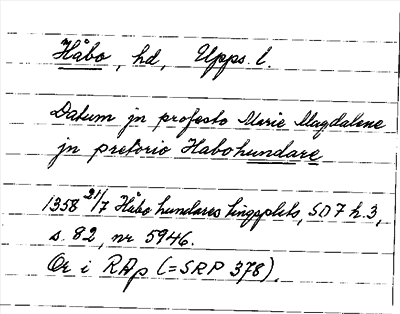 Håbo, hd, Upps. l.
Datum jn profesto Marie Magdalene
jn pretorio Habohundare
1358 21/7 Håbo hundares tingsplats, SD 7 h. 3,
s. 82, nr 5946.
Or i RAp (= SRP 378).